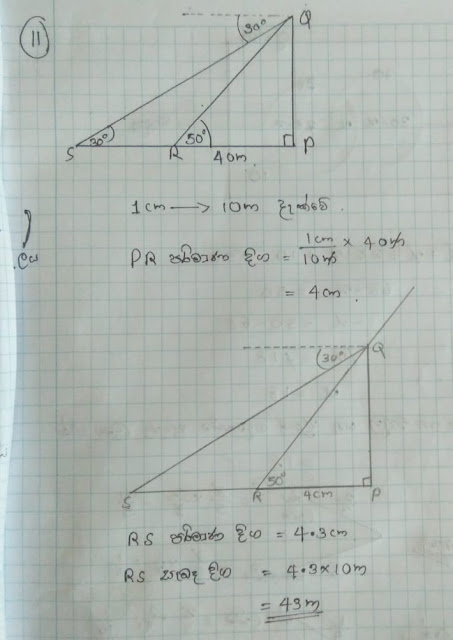 11
30° Q
S 30° R 50° 40m P
1cm → 10m දැක්වේ.
PR පරිමාණ දිග = 1cm/10m × 40m
= 4cm.
30° Q
S R 50° 4cm P
RS පරිමාණ දිග = 4.3cm
RS සැබෑ දිග = 4.3×10m
= 43m